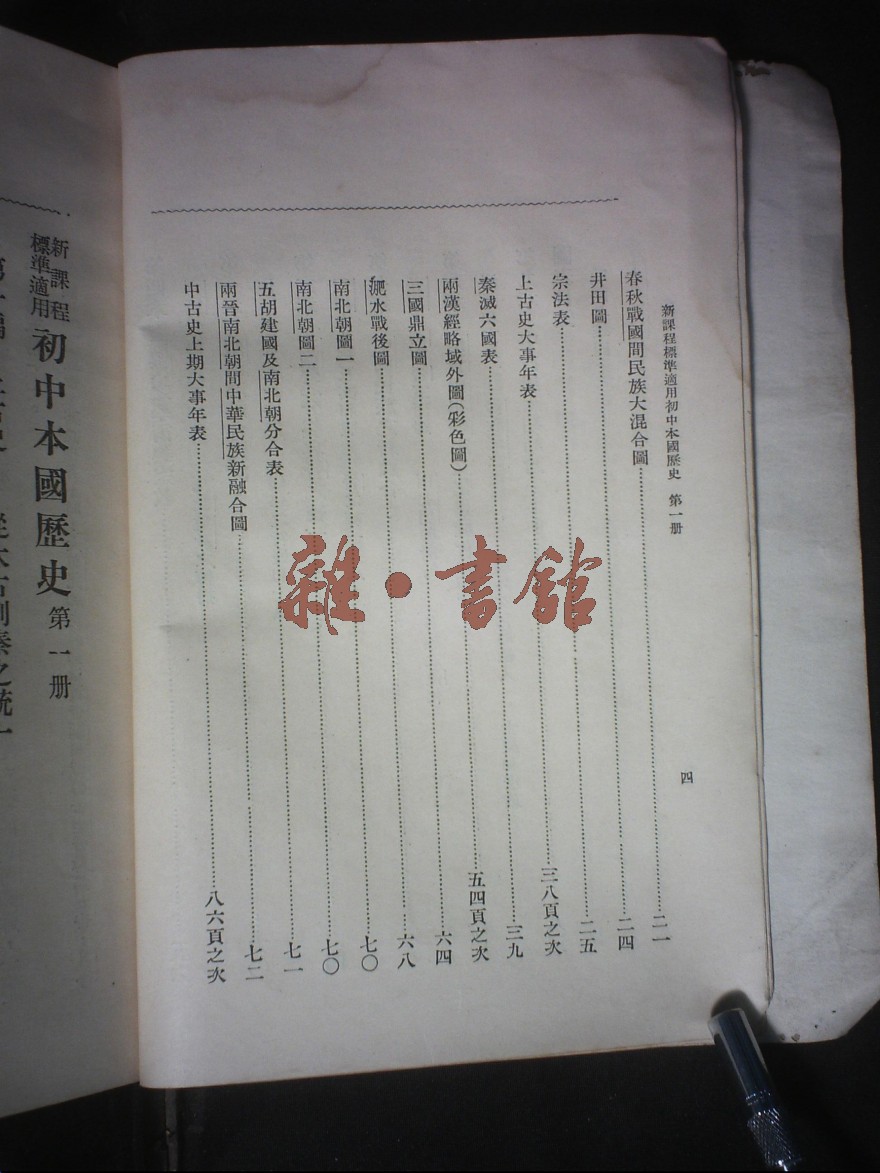 新課程標準適用初中本國歷史 第一册 四
春秋戰國間民族大混合圖……二一
井田圖……二四
宗法表……二五
上古史大事年表……三八頁之次
秦滅六國表……三九
兩漢經略域外圖(彩色圖)……五四頁之次
三國鼎立圖……六四
淝水戰後圖……六八
南北朝圖一……七〇
南北朝圖二……七〇
五胡建國及南北朝分合表……七一
兩晉南北朝間中華民族新融合圖……七二
中古史上期大事年表……八六頁之次
新課程
標準適用
初中本國歷史 第一册
太古到秦之統一
雜·書館